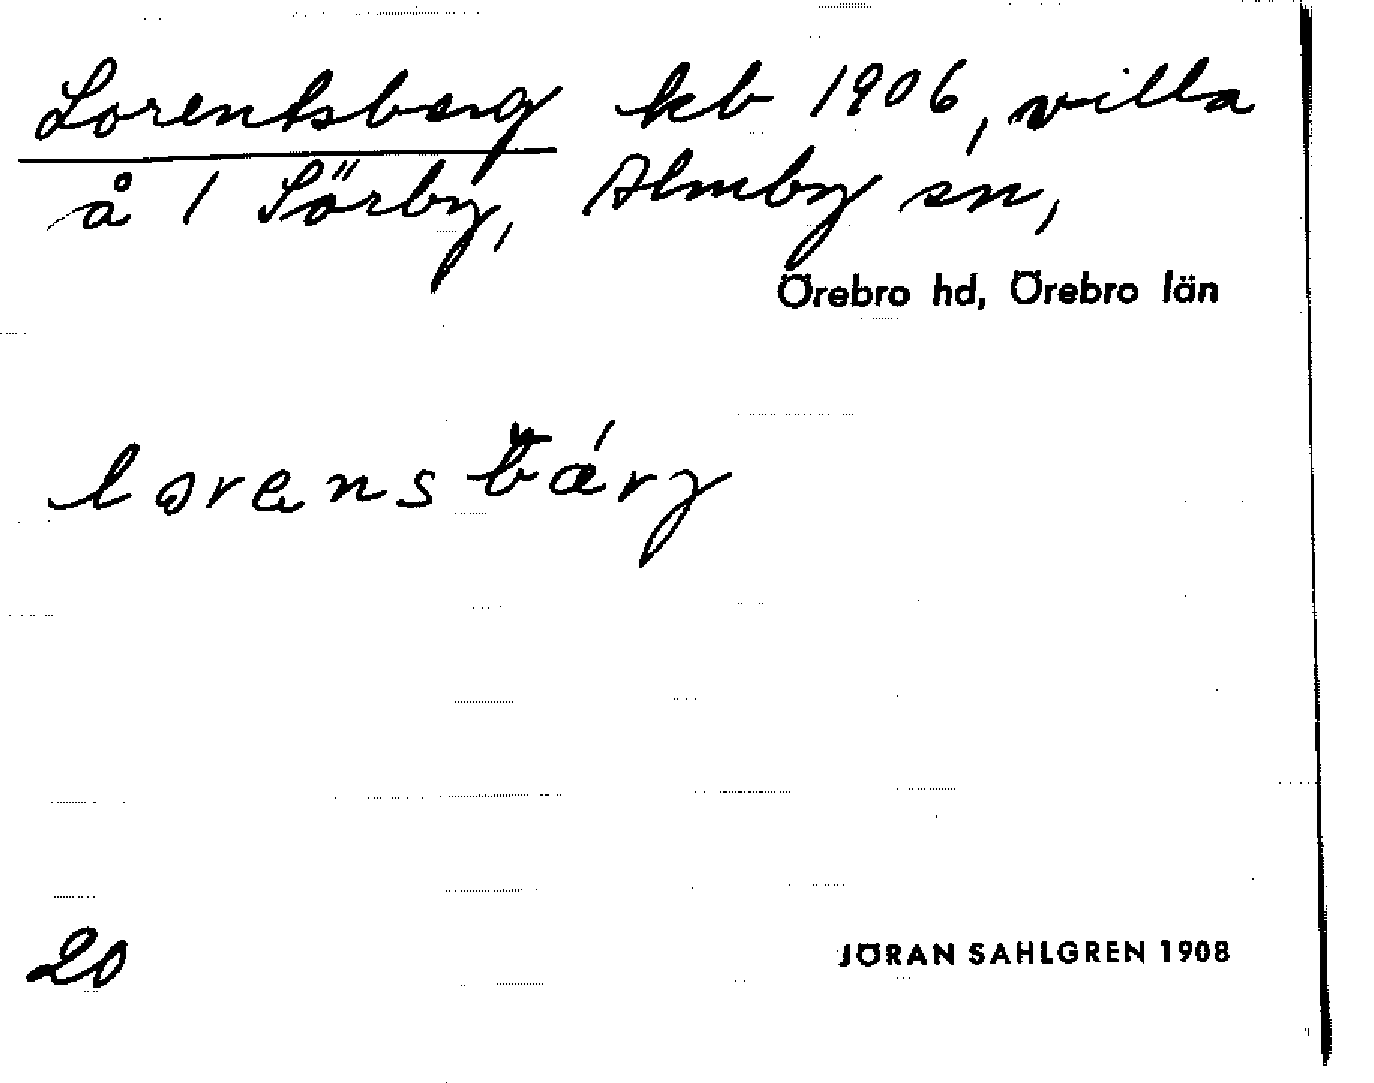 Lorentsberg kb 1906, villa
å 1 Sörby, Almby sn,
Örebro hd, Örebro län
lorensbärj
20
JÖRAN SAHLGREN 1908